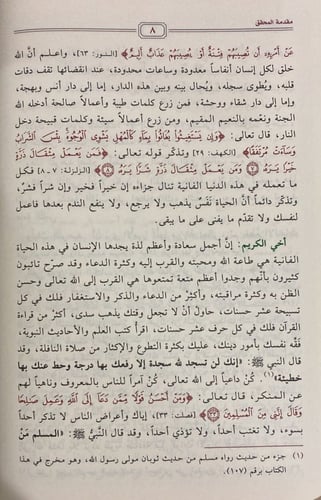 مقدمة المحقق
٨
عَنْ أَمْرِهِ أَن تُصِيبَهُمْ فِتْنَةٌ أَوْ يُصِيبَهُمْ عَذَابٌ أَلِيمٌ﴾ [النور: ٦٣]، واعلم أنَّ الله
خلق لكل إنسان أنفاساً معدودة وساعات محدودة، عند انقضائها تقف دقات
قلبه، ويُطوى سجله، ويُحال بينه وبين هذه الدار، إما إلى دار أنس وبهجة،
وإما إلى دار شقاء ووحشة، فمن زرع كلمات طيبة وأعمالاً صالحة أدخله الله
الجنة ونعَّمه بالنعيم المقيم، ومن زرع أعمالاً سيئة وكلمات قبيحة دخل
النار، قال تعالى: ﴿وَإِن يَسْتَغِيثُوا يُغَاثُوا بِمَاءٍ كَالْمُهْلِ يَشْوِي الْوُجُوهَ بِئْسَ الشَّرَابُ
وَسَاءَتْ مُرْتَفَقًا﴾ [الكهف: ٢٩] وتذكَّر قوله تعالى: ﴿فَمَن يَعْمَلْ مِثْقَالَ ذَرَّةٍ
خَيْرًا يَرَهُ ٧ وَمَن يَعْمَلْ مِثْقَالَ ذَرَّةٍ شَرًّا يَرَهُ ٨﴾ [الزلزلة: ٧ ـ ٨] فكل
ما تعمله في هذه الدنيا الفانية تنال جزاءه إن خيراً فخير وإن شراً فشرٌّ،
وتذكَّر دائماً أنَّ الحياة نَفَسٌ يذهب ولا يرجع، ولا ينفع الندم بعدها فاعمل
لنفسك ولا تقدِّم ما يفنى على ما يبقى.
أخي الكريم: إنَّ أجمل سعادة وأعظم لذة يجدها الإنسان في هذه الحياة
الفانية هي طاعة الله ومحبته والقرب إليه وكثرة الدعاء وقد صرح تائبون
كثيرون بأنَّهم وجدوا أعظم متعة تمتعوها هي القرب إلى الله تعالى وحسن
الظن به وكثرة مراقبته، وأكثِرْ من الدعاء والذكر والاستغفار فلك في كل
تسبيحة عشر حسنات، حاولْ أنْ لا تجعل وقتك يذهب سدى، أكثرْ من قراءة
القرآن فلك في كل حرف عشر حسنات، اقرأ كتب العلم والأحاديث النبوية،
فقِّه نفسك بأمور دينك، عليك بكثرة التطوع والإكثار من صلاة النافلة، وقد
قال النبي ﷺ: «إنك لن تسجد لله سجدة إلا رفعك بها درجة وحط عنك بها
خطيئة»(١). كنْ داعياً إلى الله تعالى، كنْ آمراً للناس بالمعروف وناهياً لهم
عن المنكر، قال تعالى: ﴿وَمَنْ أَحْسَنُ قَوْلًا مِّمَّن دَعَا إِلَى اللَّهِ وَعَمِلَ صَالِحًا
وَقَالَ إِنَّنِي مِنَ الْمُسْلِمِينَ ٣٣﴾ [فصلت: ٣٣] إياك وأعراض الناس لا تذكر أحداً
بسوء، ولا تغتب أحداً، ولا تؤذي أحداً، وقد قال النبيُّ ﷺ: «المسلم مَنْ
(١) جزء من حديث رواه مسلم من حديث ثوبان مولى رسول الله، وهو مخرج في هذا
الكتاب برقم (١٠٧).